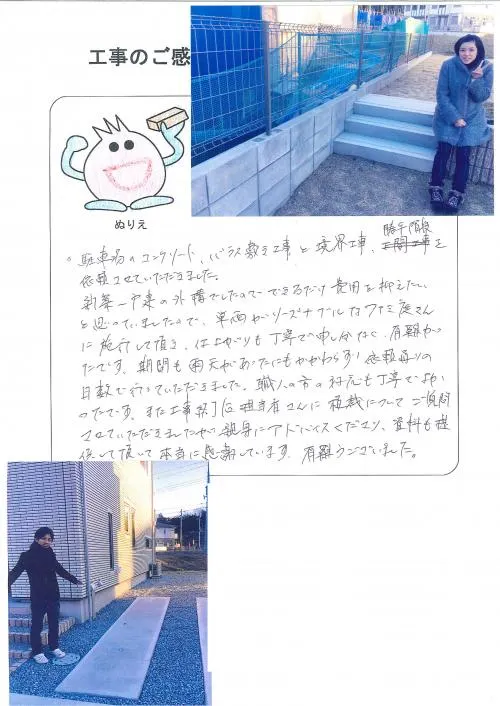 工事のご感
ぬりえ
勝手階段
。駐車場のコンクリート、バラス敷き工事と境界工事、玄関工事を
依頼させていただきました。
新築一戸建の外構でしたので、できるだけ費用を抑えたい
と思っていましたので、単価がリーズナブルなファミ庭さん
に施行して頂き、仕上がりも丁寧で申し分なく、有難かっ
たです。期間も雨天があったにもかかわらず、依頼通りの
日数で行っていただきました。職人の方の対応も丁寧でよか
ったです。また工事終了後担当者さんに植栽についてご質問
させていただきましたが親身にアドバイスくださり、資料も提
供して頂して本当に感謝しています。有難うございました。